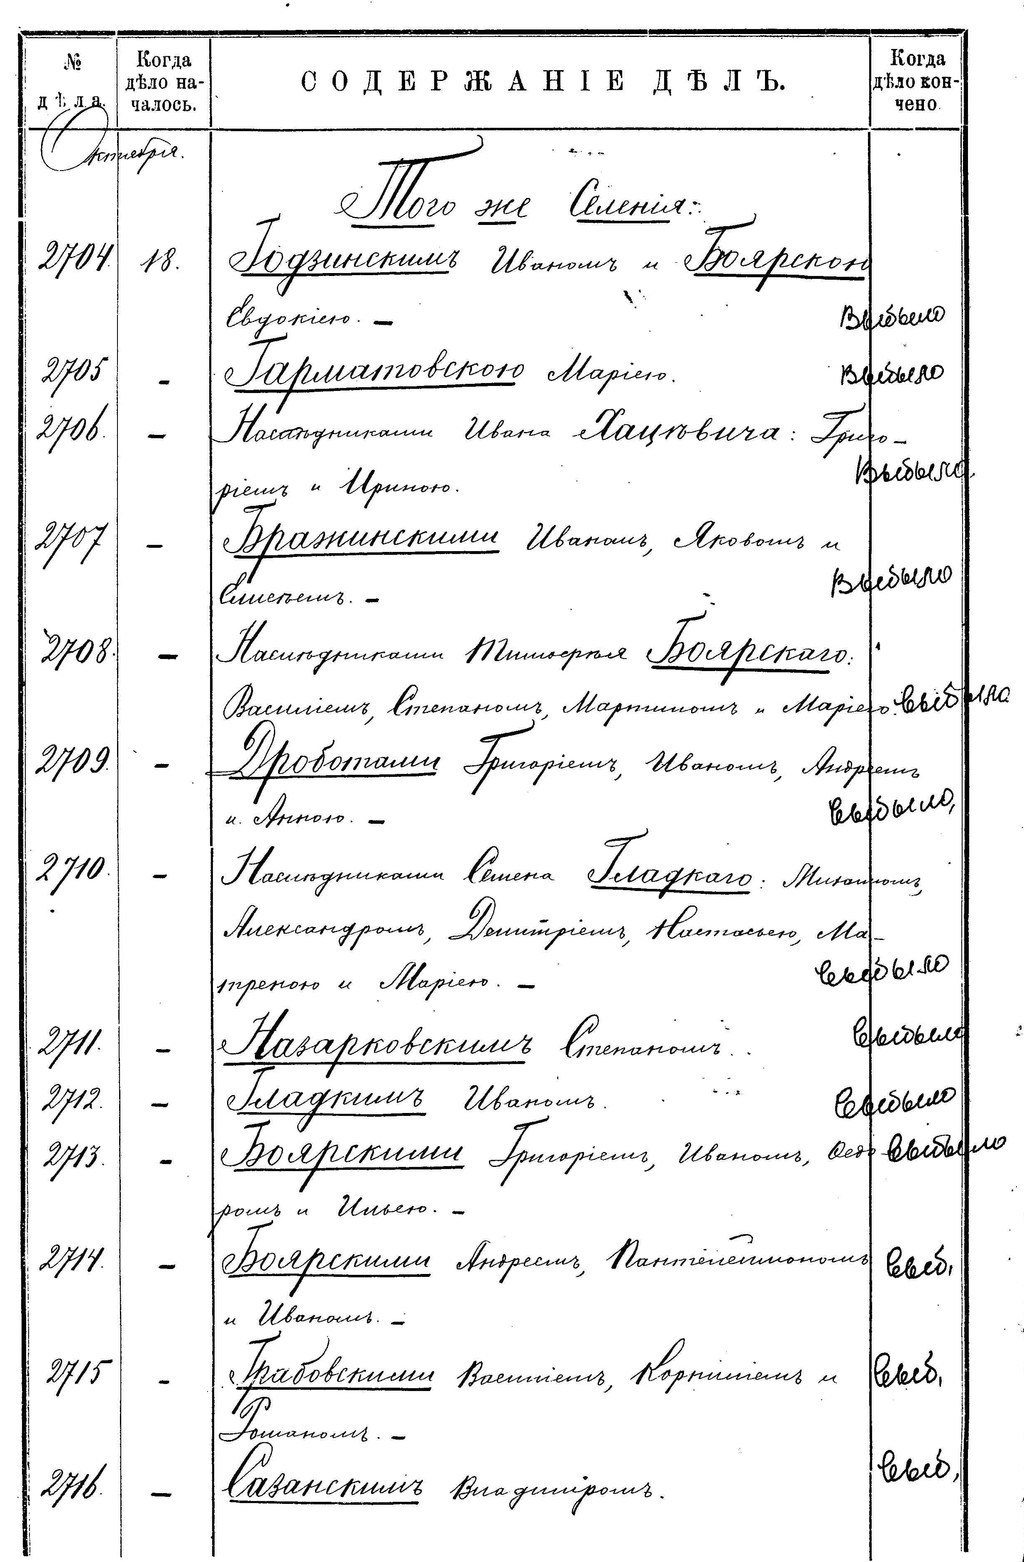 № дѣла.
Когда дѣло началось.
СОДЕРЖАНІЕ ДѢЛЪ.
Когда дѣло кончено
Октября.
Того же Селенія:
2704 18. Годзинскимъ Иваномъ и Боярскою
Евдокіею. — выбыло
2705 — Гарматовскою Маріею. выбыло
2706. — Наслѣдниками Ивана Хацкѣвича: Григо-
ріемъ и Ириною. выбыло
2707 — Бражинскими Иваномъ, Яковомъ и
Елисѣемъ. — выбыло
2708. — Наслѣдниками Тимофея Боярскаго:
Василіемъ, Степаномъ, Мартиномъ и Маріею. выбыло
2709. — Дроботами Григоріемъ, Иваномъ, Андреемъ
и Анною. — выбыло,
2710. — Наслѣдниками Семена Гладкаго:
Александромъ, Демитріемъ, Настасьею, Ма-
треною и Маріею. — выбыло
2711. — Назарковскимъ Степаномъ. выбыло
2712. — Гладкимъ Иваномъ. выбыло
2713. — Боярскими Григоріемъ, Иваномъ, Ѳедо- выбыло
ромъ и Ильею. —
2714. — Боярскими Андреемъ, Пантелеимономъ выб,
и Иваномъ. —
2715 — Грабовскими Василіемъ, Корниліемъ и выб,
Романомъ. —
2716. — Сазанскимъ Владиміромъ. выб,